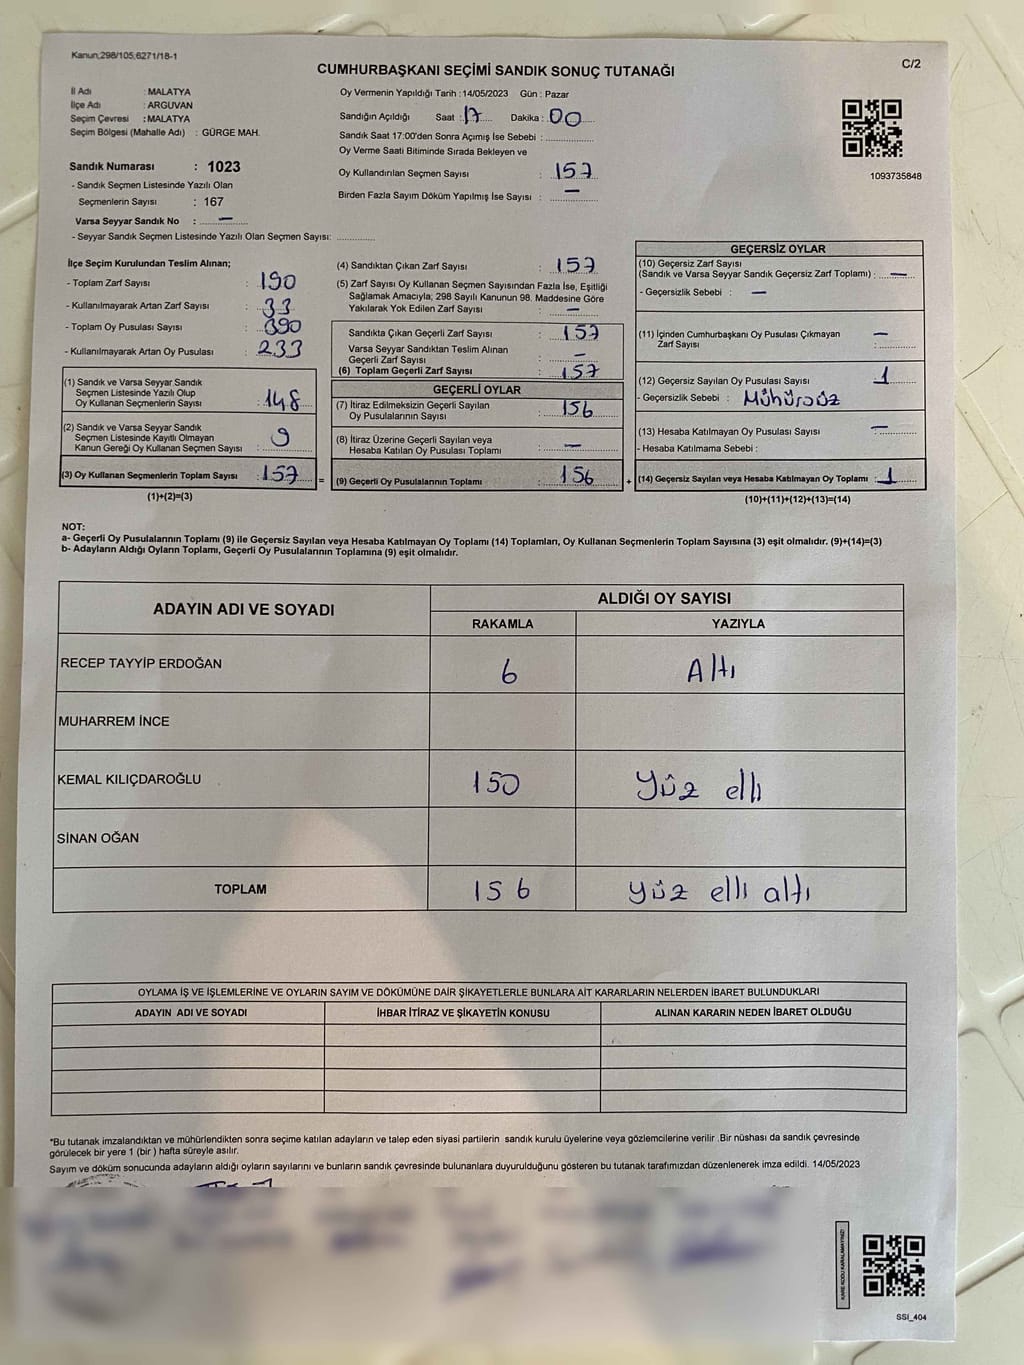 Kanun;298/105;6271/18-1
C/2
CUMHURBAŞKANI SEÇİMİ SANDIK SONUÇ TUTANAĞI
İl Adı : MALATYA
İlçe Adı : ARGUVAN
Seçim Çevresi : MALATYA
Seçim Bölgesi (Mahalle Adı) : GÜRGE MAH.
Sandık Numarası : 1023
- Sandık Seçmen Listesinde Yazılı Olan
Seçmenlerin Sayısı : 167
Varsa Seyyar Sandık No : —
- Seyyar Sandık Seçmen Listesinde Yazılı Olan Seçmen Sayısı: ..............
Oy Vermenin Yapıldığı Tarih : 14/05/2023 Gün : Pazar
Sandığın Açıldığı Saat : 17 Dakika : 00
Sandık Saat 17:00'den Sonra Açımış İse Sebebi : ..............
Oy Verme Saati Bitiminde Sırada Bekleyen ve
Oy Kullandırılan Seçmen Sayısı : 157
Birden Fazla Sayım Döküm Yapılmış İse Sayısı : —
1093735848
İlçe Seçim Kurulundan Teslim Alınan;
- Toplam Zarf Sayısı : 190
- Kullanılmayarak Artan Zarf Sayısı : 33
- Toplam Oy Pusulası Sayısı : 390
- Kullanılmayarak Artan Oy Pusulası : 233
(1) Sandık ve Varsa Seyyar Sandık
Seçmen Listesinde Yazılı Olup
Oy Kullanan Seçmenlerin Sayısı : 148
(2) Sandık ve Varsa Seyyar Sandık
Seçmen Listesinde Kayıtlı Olmayan
Kanun Gereği Oy Kullanan Seçmen Sayısı : 9
(3) Oy Kullanan Seçmenlerin Toplam Sayısı : 157 =
(1)+(2)=(3)
(4) Sandıktan Çıkan Zarf Sayısı : 157
(5) Zarf Sayısı Oy Kullanan Seçmen Sayısından Fazla İse, Eşitliği
Sağlamak Amacıyla; 298 Sayılı Kanunun 98. Maddesine Göre
Yakılarak Yok Edilen Zarf Sayısı : —
Sandıkta Çıkan Geçerli Zarf Sayısı : 157
Varsa Seyyar Sandıktan Teslim Alınan
Geçerli Zarf Sayısı : —
(6) Toplam Geçerli Zarf Sayısı : 157
GEÇERLİ OYLAR
(7) İtiraz Edilmeksizin Geçerli Sayılan
Oy Pusulalarının Sayısı : 156
(8) İtiraz Üzerine Geçerli Sayılan veya
Hesaba Katılan Oy Pusulası Toplamı : —
(9) Geçerli Oy Pusulalarının Toplamı : 156 +
GEÇERSİZ OYLAR
(10) Geçersiz Zarf Sayısı
(Sandık ve Varsa Seyyar Sandık Geçersiz Zarf Toplamı) : —
- Geçersizlik Sebebi : —
(11) İçinden Cumhurbaşkanı Oy Pusulası Çıkmayan
Zarf Sayısı : —
(12) Geçersiz Sayılan Oy Pusulası Sayısı : 1
- Geçersizlik Sebebi : Mühürsüz
(13) Hesaba Katılmayan Oy Pusulası Sayısı : —
- Hesaba Katılmama Sebebi :
(14) Geçersiz Sayılan veya Hesaba Katılmayan Oy Toplamı : 1
(10)+(11)+(12)+(13)=(14)
NOT:
a- Geçerli Oy Pusulalarının Toplamı (9) ile Geçersiz Sayılan veya Hesaba Katılmayan Oy Toplamı (14) Toplamları, Oy Kullanan Seçmenlerin Toplam Sayısına (3) eşit olmalıdır. (9)+(14)=(3)
b- Adayların Aldığı Oyların Toplamı, Geçerli Oy Pusulalarının Toplamına (9) eşit olmalıdır.
ADAYIN ADI VE SOYADI ALDIĞI OY SAYISI
RAKAMLA YAZIYLA
RECEP TAYYİP ERDOĞAN 6 Altı
MUHARREM İNCE
KEMAL KILIÇDAROĞLU 150 Yüz elli
SİNAN OĞAN
TOPLAM 156 yüz elli altı
OYLAMA İŞ VE İŞLEMLERİNE VE OYLARIN SAYIM VE DÖKÜMÜNE DAİR ŞİKAYETLERLE BUNLARA AİT KARARLARIN NELERDEN İBARET BULUNDUKLARI
ADAYIN ADI VE SOYADI İHBAR İTİRAZ VE ŞİKAYETİN KONUSU ALINAN KARARIN NEDEN İBARET OLDUĞU
*Bu tutanak imzalandıktan ve mühürlendikten sonra seçime katılan adayların ve talep eden siyasi partilerin sandık kurulu üyelerine veya gözlemcilerine verilir .Bir nüshası da sandık çevresinde
görülecek bir yere 1 (bir ) hafta süreyle asılır.
Sayım ve döküm sonucunda adayların aldığı oyların sayılarını ve bunların sandık çevresinde bulunanlara duyurulduğunu gösteren bu tutanak tarafımızdan düzenlenerek imza edildi. 14/05/2023
KARE KODU KARALAMAYINIZ!
SSI_404